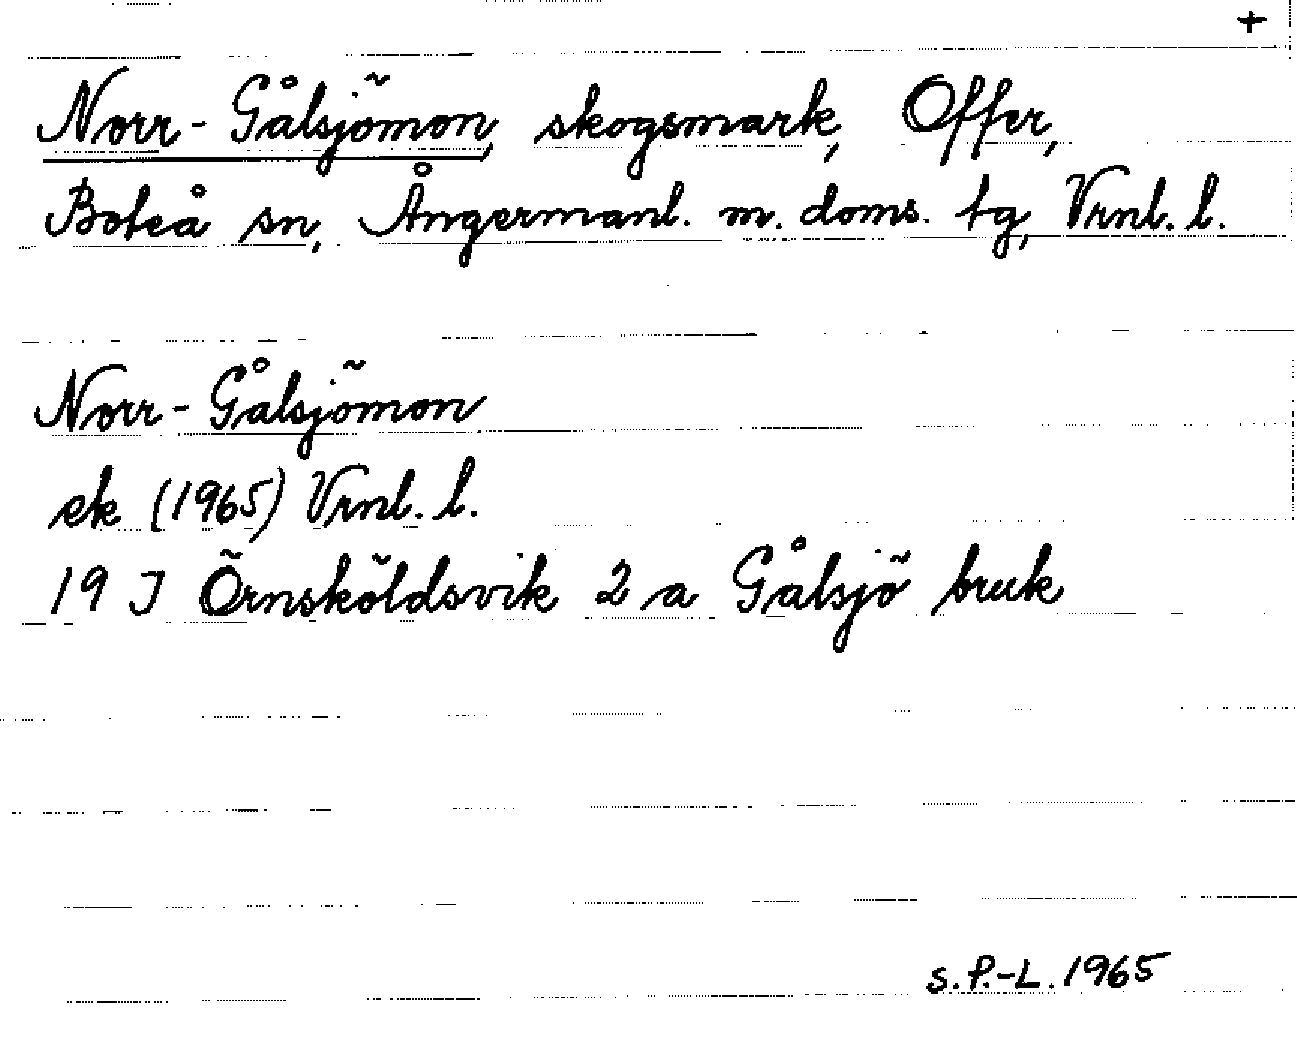 +
Norr-Gålsjömon, skogsmark, Offer,
Boteå sn, Ångermanl. m. doms. tg, Vrnl. l.
Norr-Gålsjömon
ek (1965) Vrnl. l.
19 J Örnsköldsvik 2 a Gålsjö bruk
S.P.-L. 1965